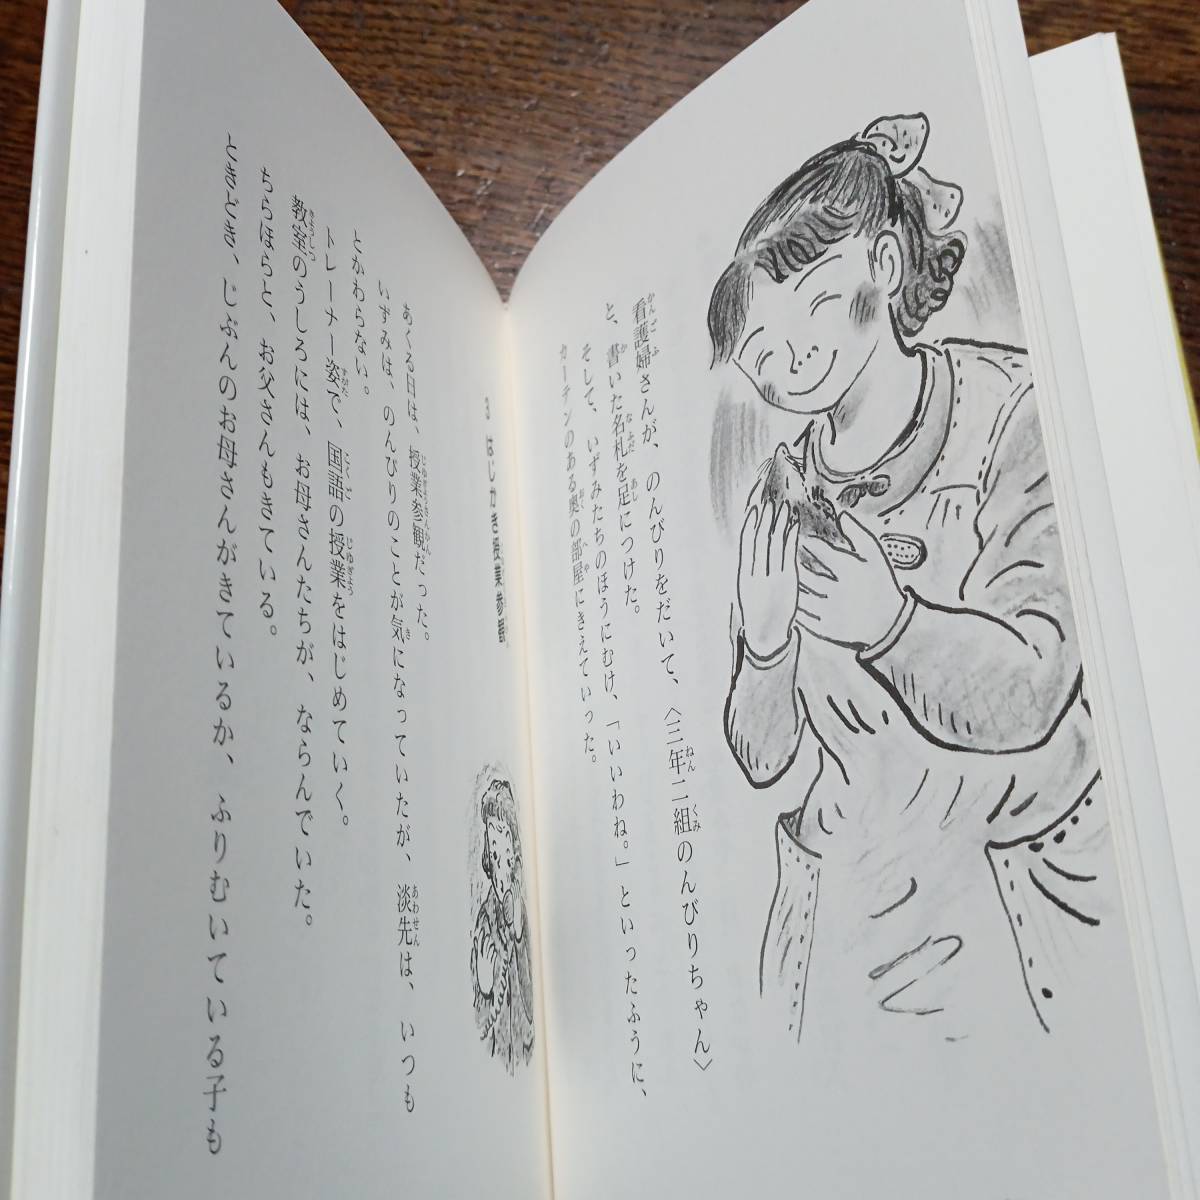 看護婦さんが、のんびりをだいて、〈三年二組のんびりちゃん〉
と、書いた名札を足につけた。
そして、いずみたちのほうにむけ、「いいわね。」といったふうに、
カーテンのある奥の部屋にきえていった。
3 はじかき授業参観
あくる日は、授業参観だった。
いずみは、のんびりのことが気になっていたが、淡先は、いつも
とかわらない。
トレーナー姿で、国語の授業をはじめていく。
教室のうしろには、お母さんたちが、ならんでいた。
ちらほらと、お父さんもきている。
ときどき、じぶんのお母さんがきているか、ふりむいている子も